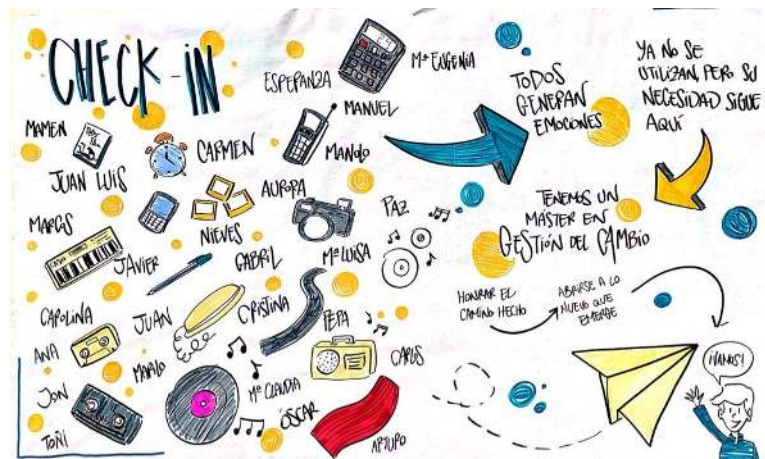 CHECK-IN
ESPERANZA
Mª EUGENIA
MANUEL
MAMEN
CARMEN
MANOLO
JUAN LUIS
AURORA
PAZ
MARCOS
NIEVES
JAVIER
GABRIL
Mª LUISA
CAROLINA
JUAN
CRISTINA
PEPA
ANA
CARLOS
JON
Mª CLAUDIA
ÓSCAR
TOÑI
ARTURO
TODOS
GENERAN
EMOCIONES
YA NO SE
UTILIZAN, PERO SU
NECESIDAD SIGUE
AQUÍ
TENEMOS UN
MÁSTER EN
GESTIÓN DEL CAMBIO
HONRAR EL
CAMINO HECHO
ABRIRSE A LO
NUEVO QUE
EMERGE
¡VAMOS!